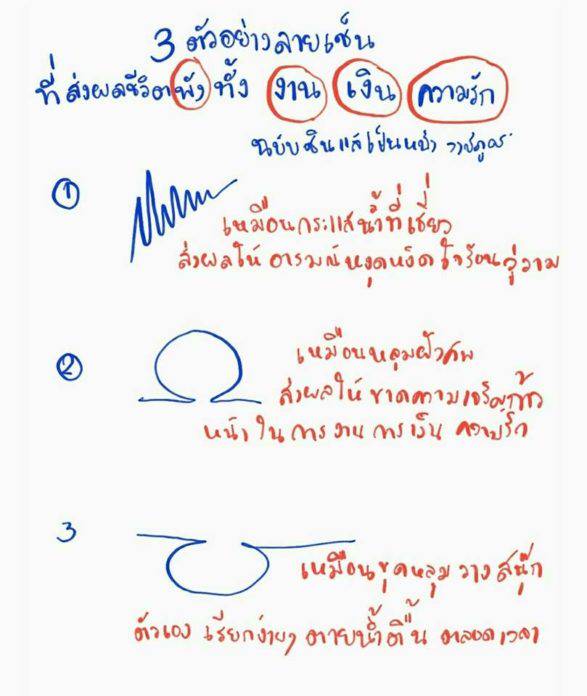 3 ตัวอย่างลายเซ็น
ที่ส่งผลชีวิตพัง ทั้ง งาน เงิน ความรัก
ฉบับซินแสเป็นหนึ่ง
①
เหมือนกระแสน้ำที่เชี่ยว
ส่งผลให้ อารมณ์หงุดหงิด ใจร้อน วู่วาม
②
เหมือนหลุมฝังศพ
ส่งผลให้ ขาดความเจริญก้าว
หน้า ใน การงาน การเงิน ความรัก
3
เหมือนขุดหลุม วาง สนุ๊ก
ตัวเอง เรียกง่ายๆ ตายน้ำตื้น ตลอดเวลา